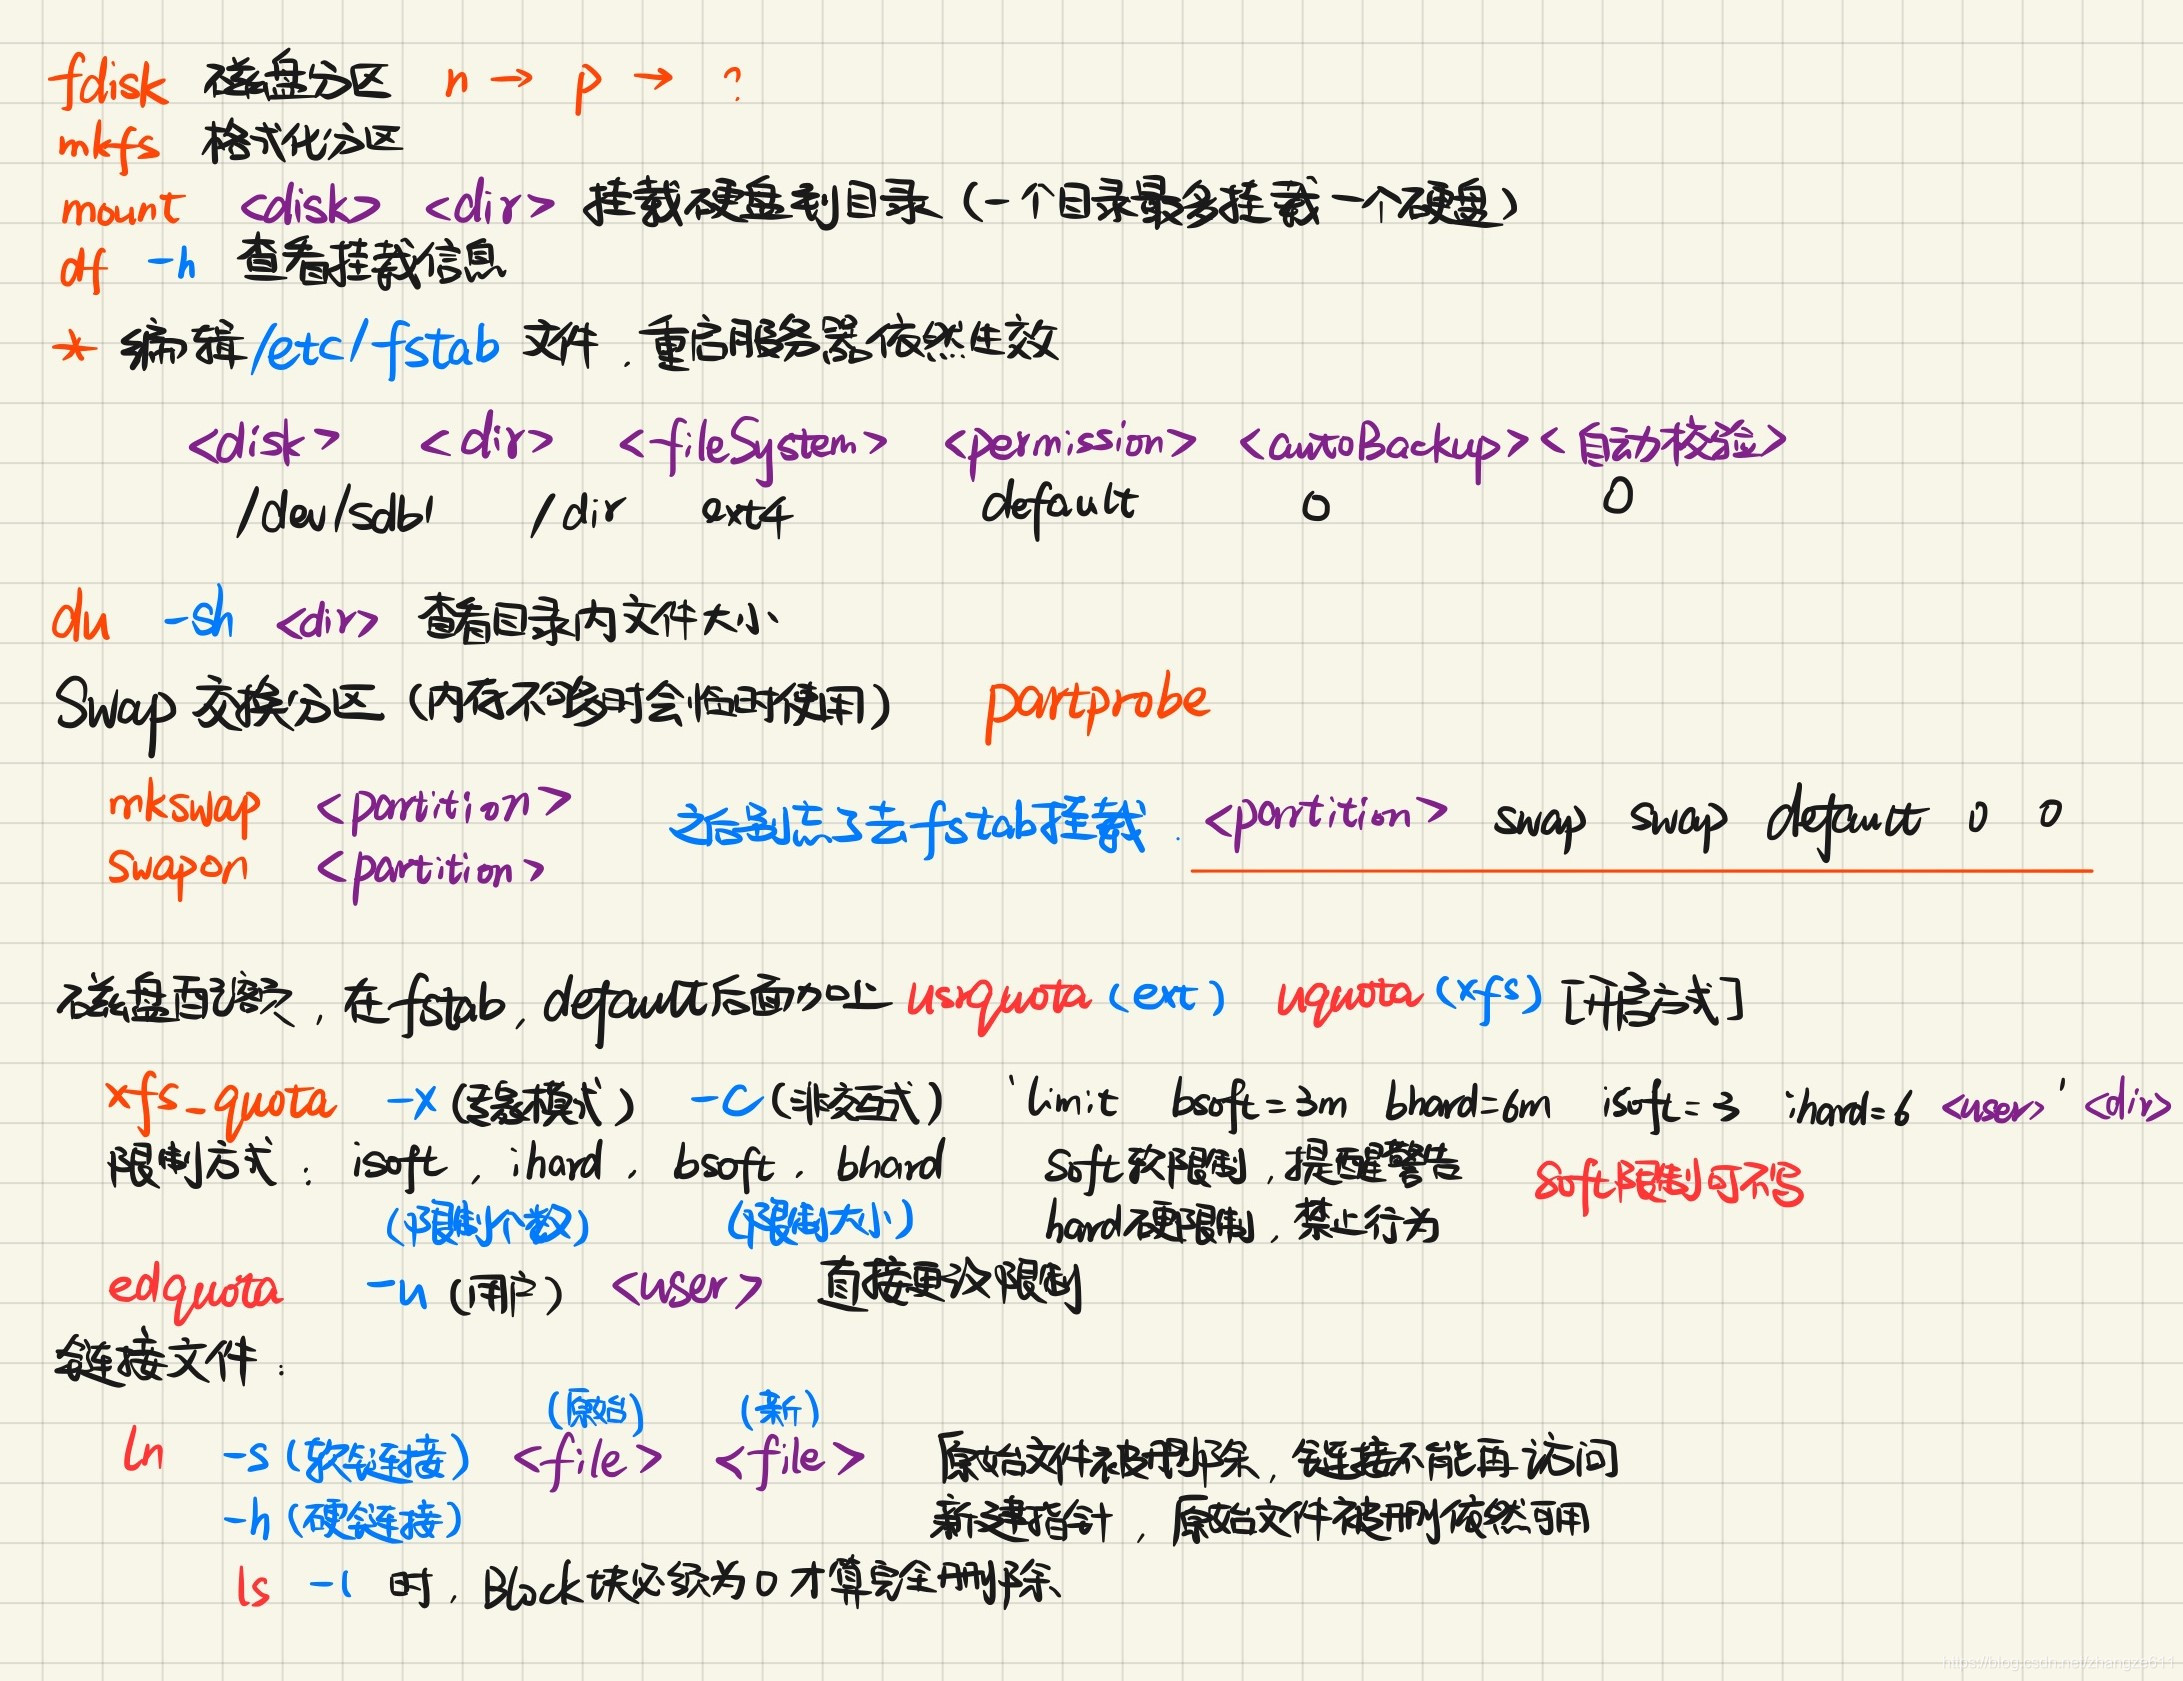 fdisk 磁盘分区 n → p → ?
mkfs 格式化分区
mount <disk> <dir> 挂载硬盘到目录（一个目录最多挂载一个硬盘）
df -h 查看挂载信息
* 编辑/etc/fstab 文件，重启服务器依然生效
<disk> <dir> <fileSystem> <permission> <autoBackup> <自动校验>
/dev/sdb1 /dir ext4 default 0 0
du -sh <dir> 查看目录内文件大小
Swap 交换分区（内存不够时会临时使用） partprobe
mkswap <partition> 之后别忘了去fstab挂载. <partition> swap swap default 0 0
swapon <partition>
磁盘配额，在fstab，default后面加上 usrquota (ext) uquota (xfs) [开启方式]
xfs_quota -x (专家模式) -c (非交互式) 'limit bsoft=3m bhard=6m isoft=3 ihard=6 <user>' <dir>
限制方式：isoft，ihard，bsoft，bhard soft 软限制，提醒警告 soft限制可不写
(限制个数) (限制大小) hard 硬限制，禁止行为
edquota -u (用户) <user> 直接更改限制
链接文件：
(原始) (新)
ln -s (软链接) <file> <file> 原始文件被删除，链接不能再访问
-h (硬链接) 新建指针，原始文件被删依然可用
ls -l 时，Block块必须为0才算完全删除
https://blog.csdn.net/zhangze611